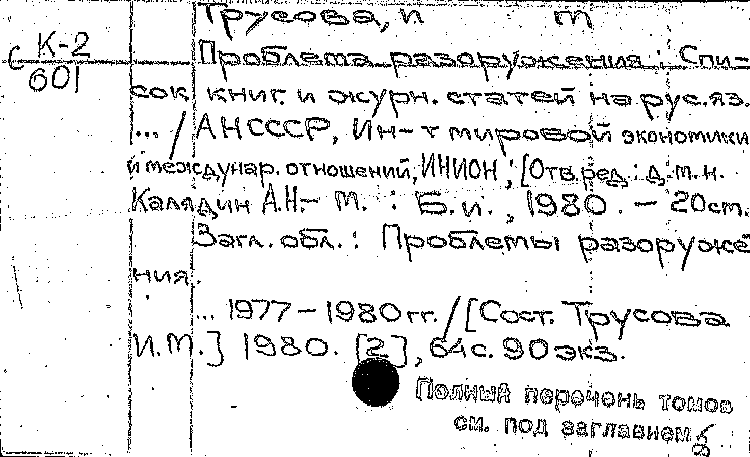 Трусова, И М
С К-2
601
Проблема разоружения : Спи-
сок книг. и журн. статей на рус. яз.
... / АН СССР, Ин-т мировой экономики
и междунар. отношений, ИНИОН ; [Отв. ред. : д. т. н.
Калядин А.Н. - М. : Б. и. , 1980. - 20 см.
Загл. обл. : Проблемы разоруже
ния.
... 1977 - 1980 гг. / [Сост. Трусова
И. М.] 1980. [2], 64 с. 90 экз.
Полный перечень томов
см. под заглавием